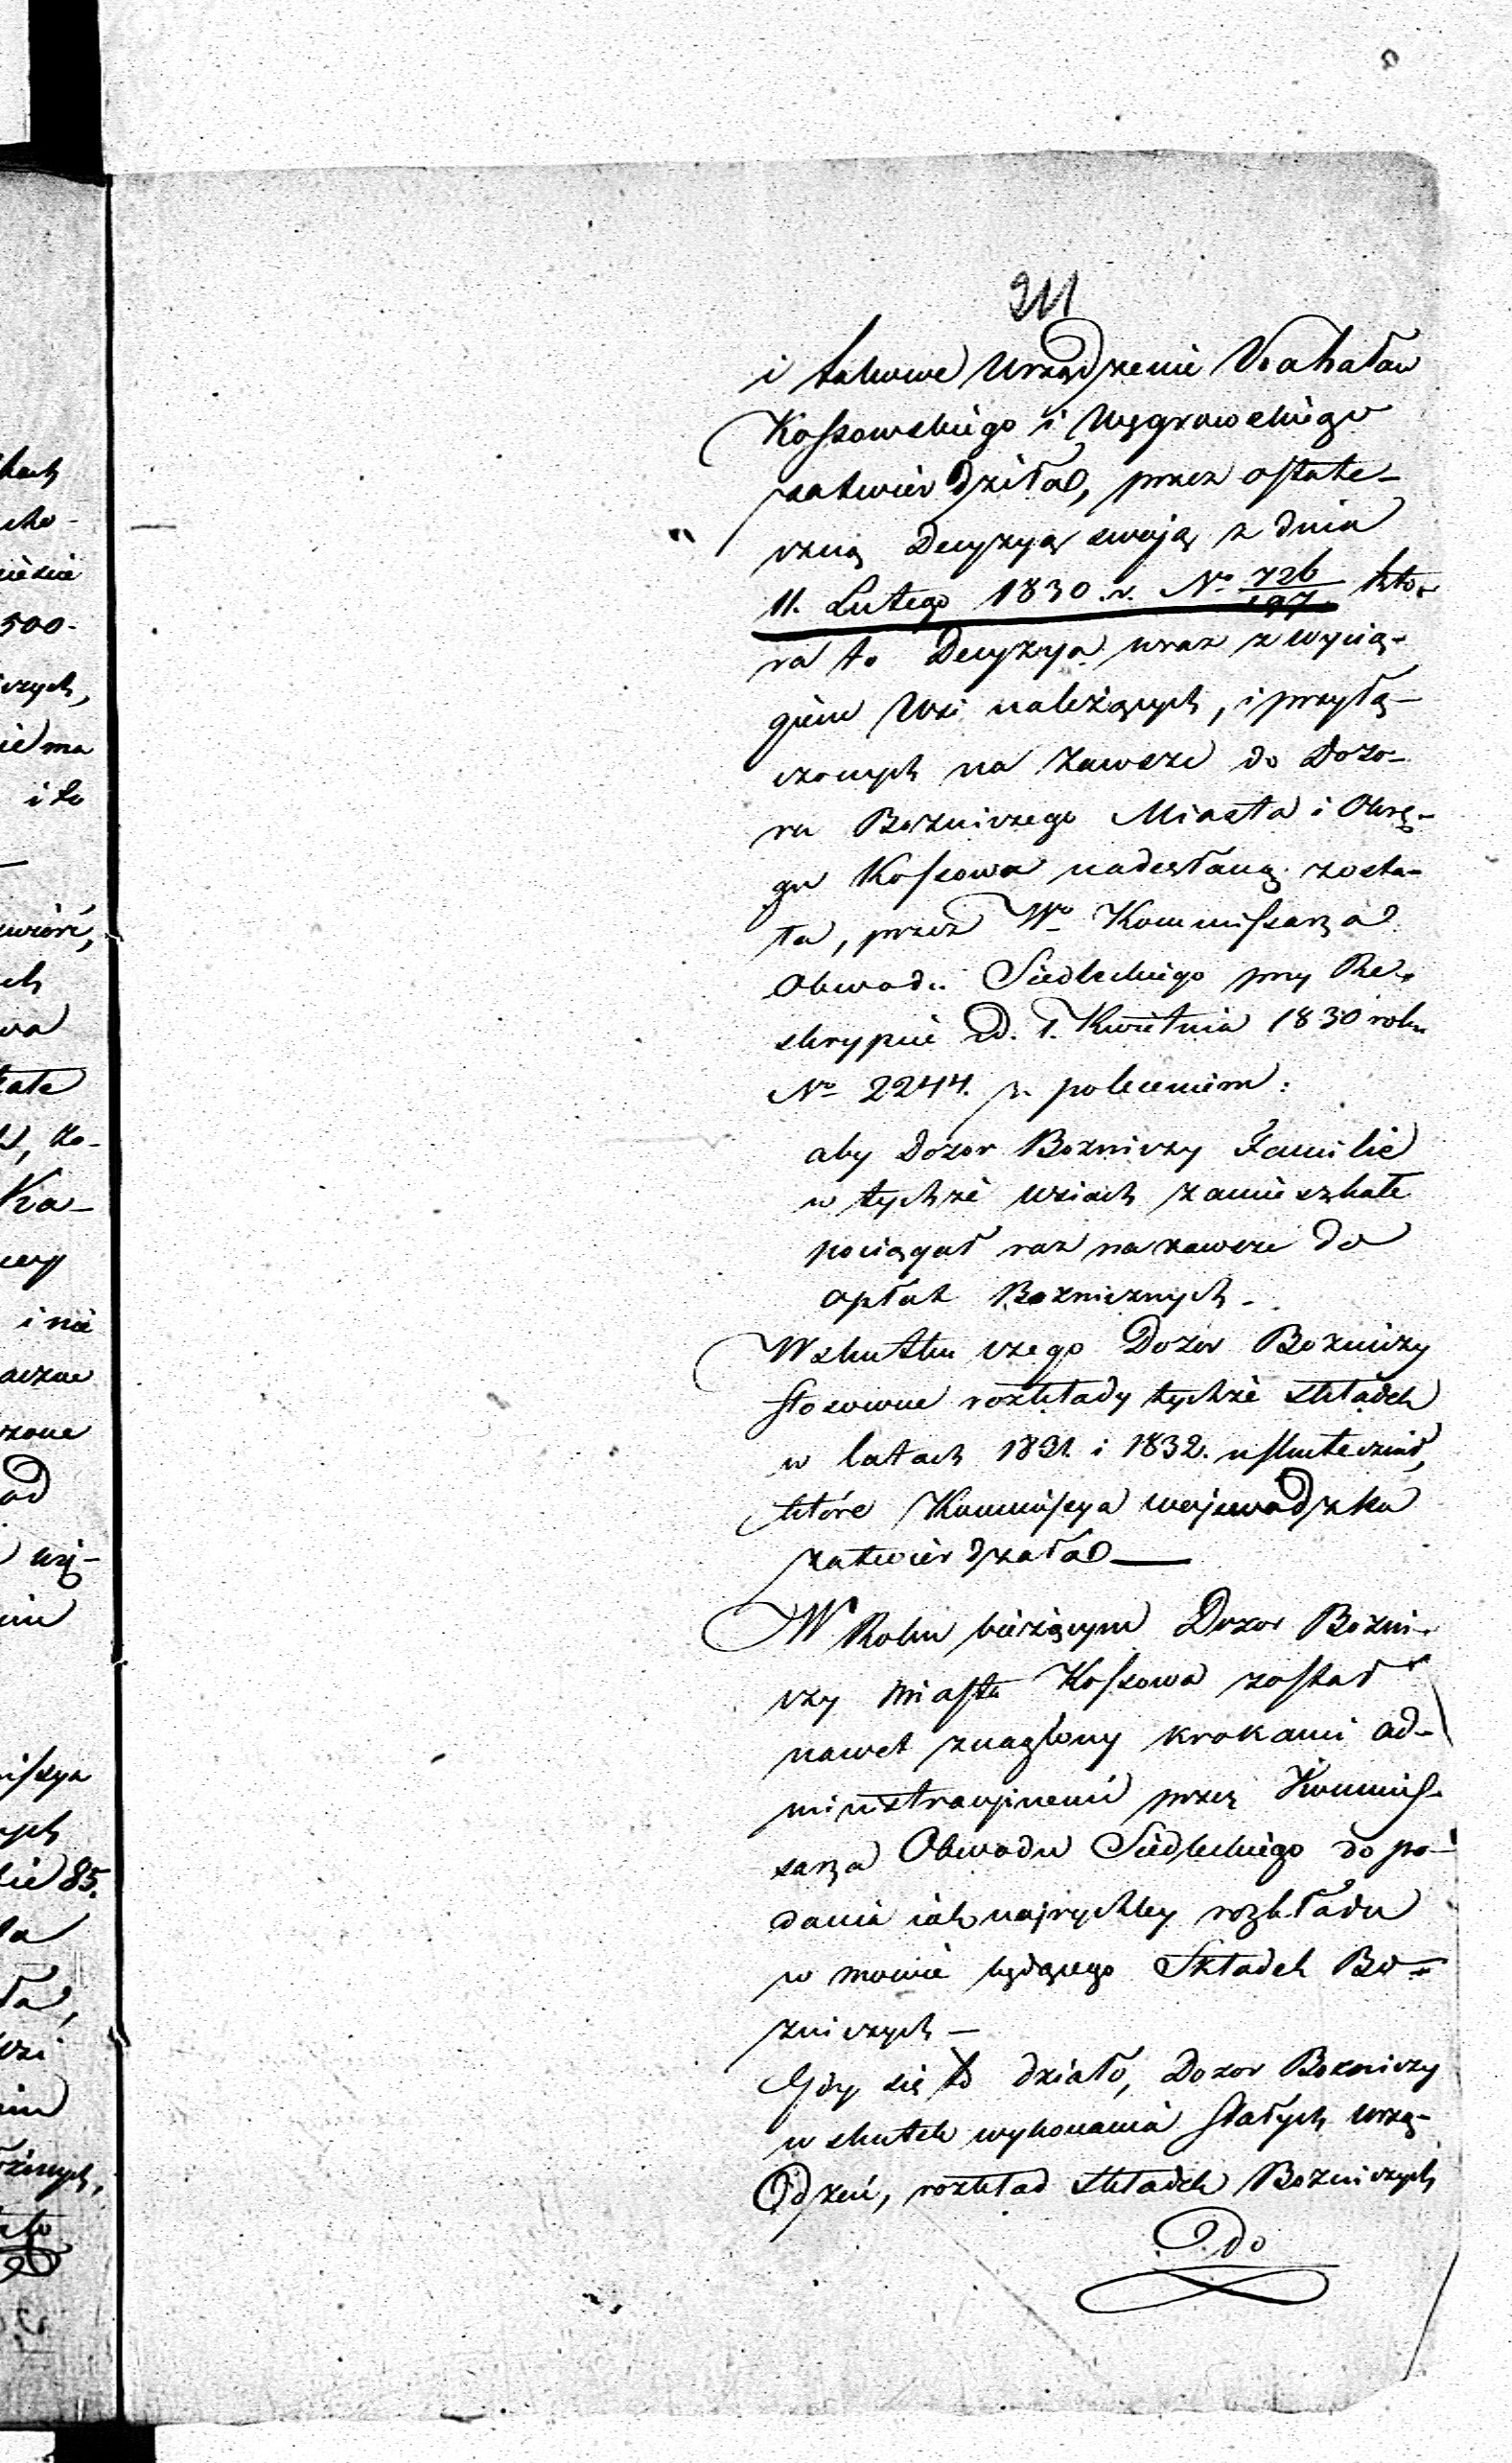 211
i takowe Urządzenie Kahałów
Kossowskiego i Węgrowskiego
zatwierdziła, przez ostate-
czną Decyzyą swoją z dnia
11. Lutego 1830. r. No 726/197 któ-
ra to Decyzya wraz z wycią-
giem Wsi należących, i przyłą-
czonych na zawsze do Dozo-
ru Bozniczego Miasta i Okrę-
gu Kossowa nadesłaną zosta-
ła, przez Wo Kommissarza
Obwodu Siedleckiego przy Re-
skrypcie d. 1. Kwietnia 1830 roku
No 2244. z poleceniem:
aby Dozor Bozniczy Familie
w tychże wsiach zamieszkałe
pociągał raz na zawsze do
opłat Boznicznych.
Wskutku czego Dozor Bozniczy
stosowne rozkłady tychże składek
w latach 1831. i 1832. uskutecznił,
które Kommissya Wojewodzka
zatwierdzała —
W Roku bieżącym Dozor Bozni-
czy miasta Kossowa został
nawet znaglony krokami ad-
ministracyinemi przez Kommis-
sarza Obwodu Siedleckiego do po-
dania iak najrychley rozkładu
w mowie będącego Składek Bo-
zniczych —
Gdy się to działo, Dozor Bozniczy
w skutek wykonania stałych urzą-
dzeń, rozkład składek Bozniczych
do
kach
cho-
500-
czych,
nie ma
i to
ych
wa
Ka-
i nie
aczne
czone
od
wsi-
nim
missya
nych
85.
ła
ła,
wsi